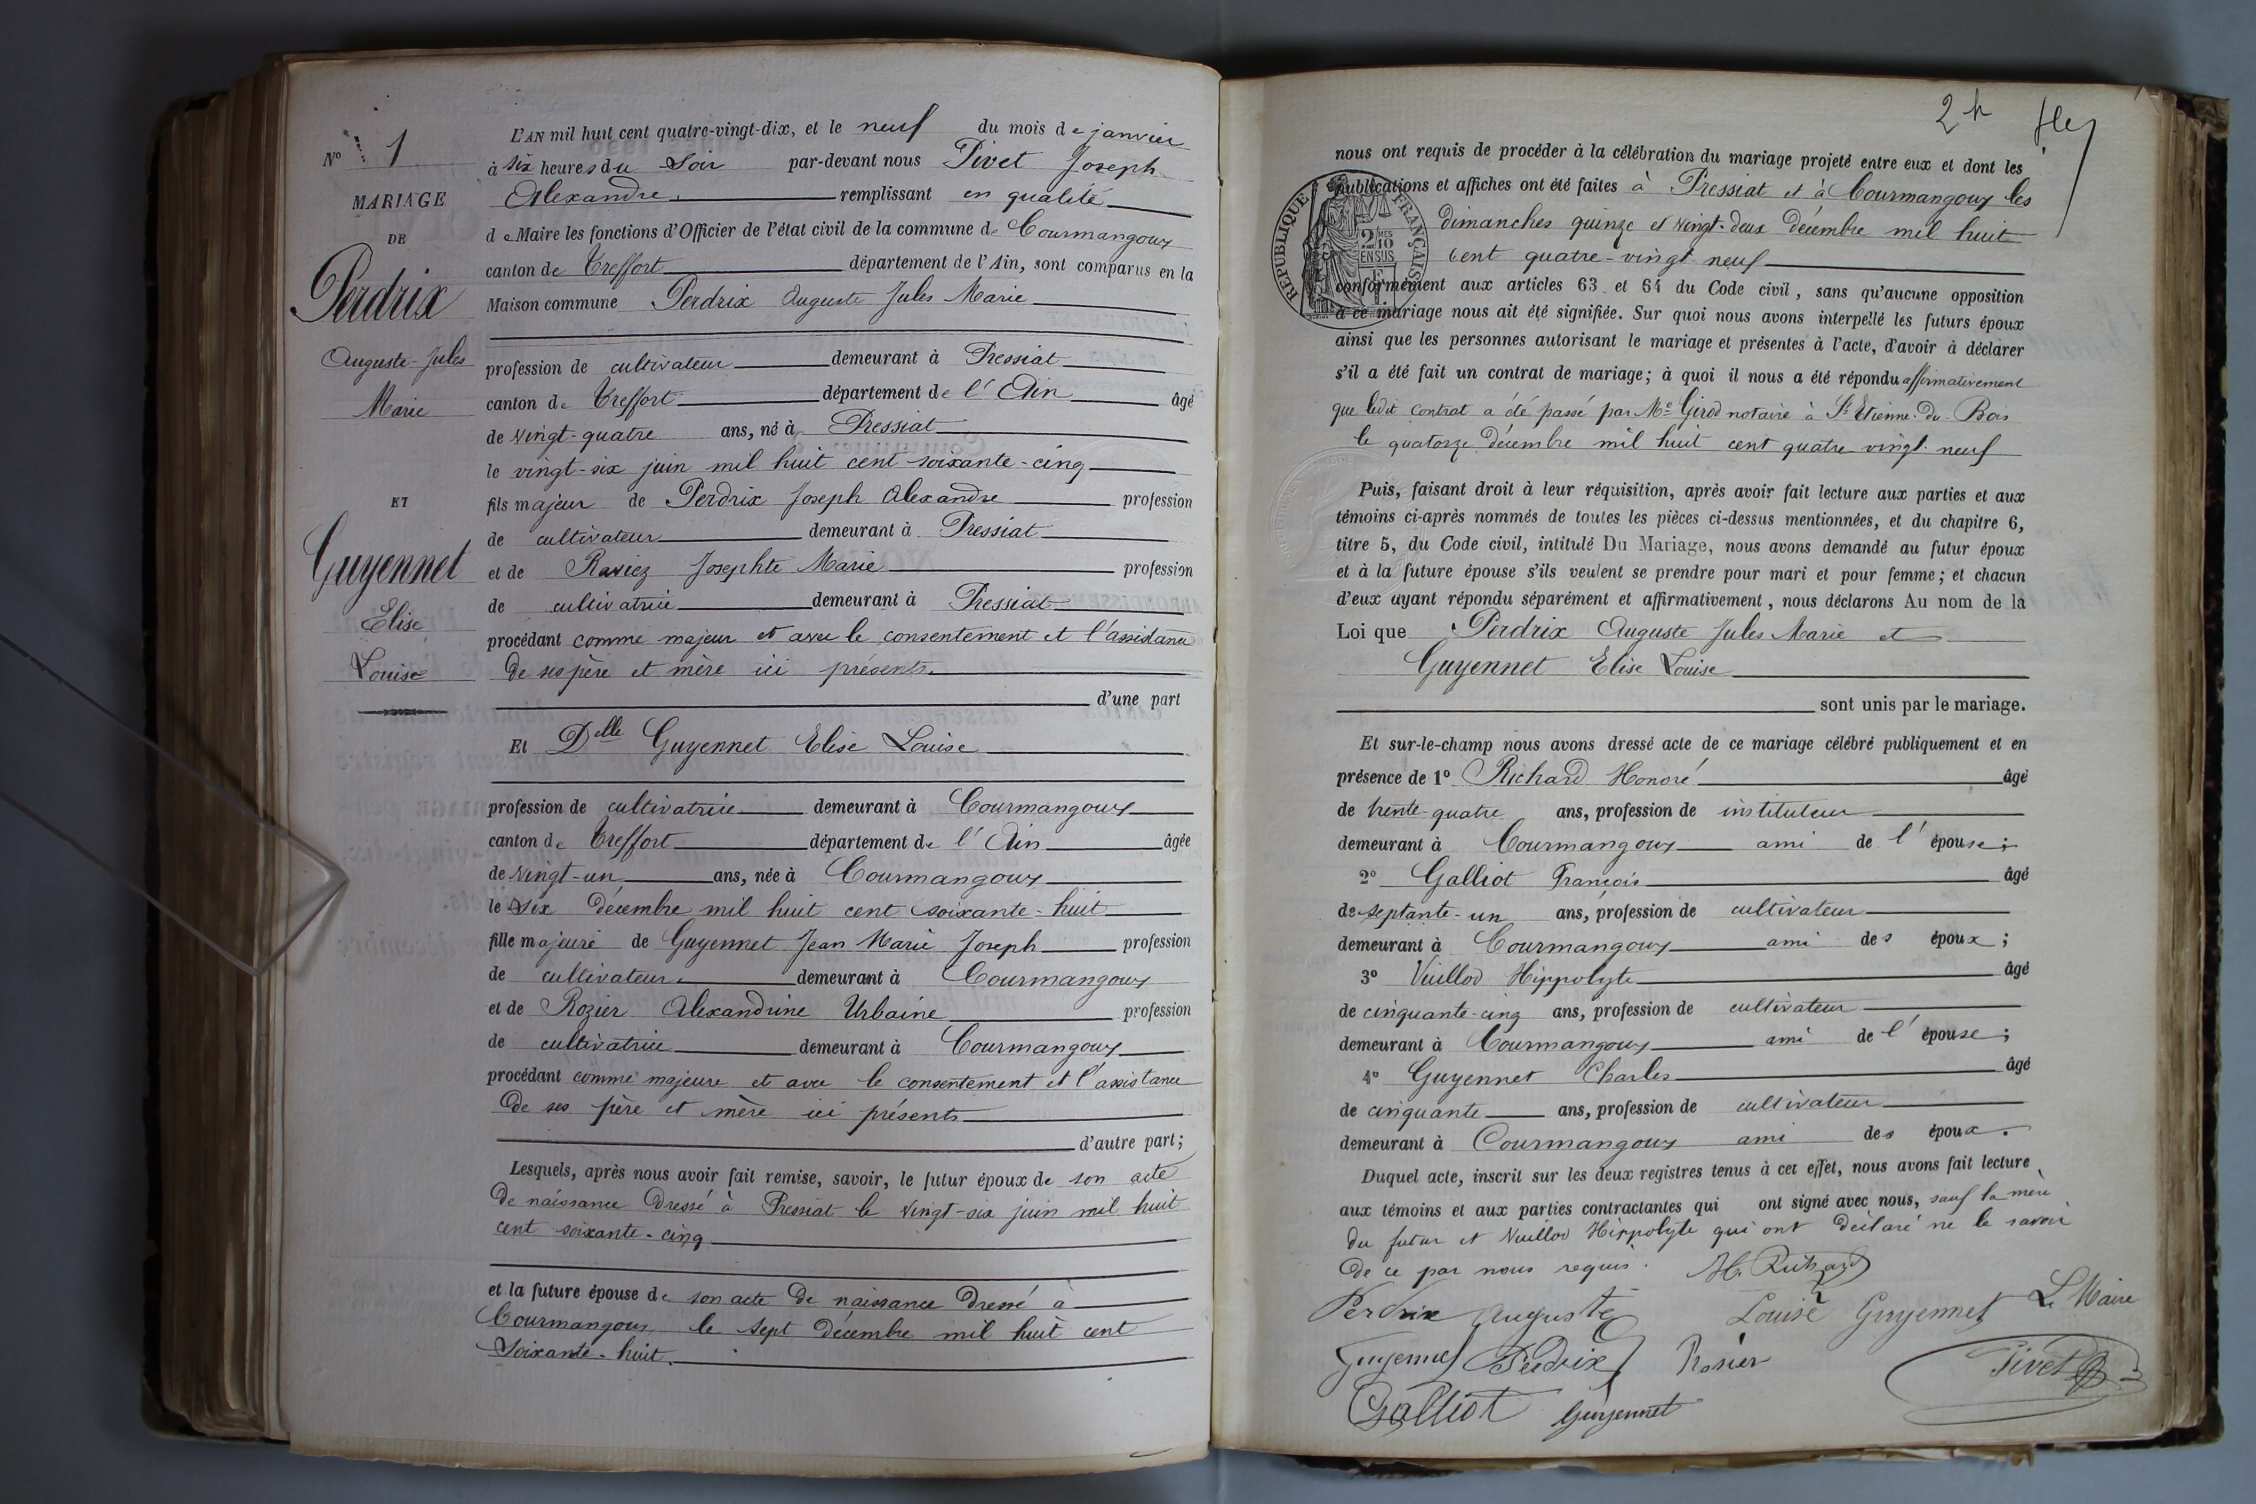 N° 1
MARIAGE
DE
Perdrix
Auguste-Jules
Marie
ET
Guyennet
Elise
Louise
L'AN mil huit cent quatre-vingt-dix, et le neuf du mois de janvier
à six heures du soir par-devant nous Pivet Joseph
Alexandre remplissant en qualité
de Maire les fonctions d'Officier de l'état civil de la commune de Courmangoux
canton de Treffort département de l'Ain, sont comparus en la
Maison commune Perdrix Auguste Jules Marie
profession de cultivateur demeurant à Pressiat
canton de Treffort département de l'Ain âgé
de vingt-quatre ans, né à Pressiat
le vingt-six juin mil huit cent soixante-cinq
fils majeur de Perdrix Joseph Alexandre profession
de cultivateur demeurant à Pressiat
et de Raviez Josephte Marie profession
de cultivatrice demeurant à Pressiat
procédant comme majeur et avec le consentement et l'assistance
de ses père et mère ici présents.
d'une part
Et Delle Guyennet Elise Louise
profession de cultivatrice demeurant à Courmangoux
canton de Treffort département de l'Ain âgée
de vingt-un ans, née à Courmangoux
le six décembre mil huit cent soixante-huit
fille majeure de Guyennet Jean Marie Joseph profession
de cultivateur demeurant à Courmangoux
et de Rozier Alexandrine Urbaine profession
de cultivatrice demeurant à Courmangoux
procédant comme majeure et avec le consentement et l'assistance
de ses père et mère ici présents
d'autre part;
Lesquels, après nous avoir fait remise, savoir, le futur époux de son acte
de naissance dressé à Pressiat le vingt-six juin mil huit
cent soixante-cinq
et la future épouse de son acte de naissance dressé à
Courmangoux le sept décembre mil huit cent
soixante-huit.
2
nous ont requis de procéder à la célébration du mariage projeté entre eux et dont les
publications et affiches ont été faites à Pressiat et à Courmangoux les
dimanches quinze et vingt-deux décembre mil huit
cent quatre-vingt neuf
RÉPUBLIQUE FRANÇAISE
2 MES
10
EN SUS
conformément aux articles 63 et 64 du Code civil, sans qu'aucune opposition
à ce mariage nous ait été signifiée. Sur quoi nous avons interpellé les futurs époux
ainsi que les personnes autorisant le mariage et présentes à l'acte, d'avoir à déclarer
s'il a été fait un contrat de mariage; à quoi il nous a été répondu affirmativement
que ledit contrat a été passé par Me Girod notaire à St Etienne-du-Bois
le quatorze décembre mil huit cent quatre vingt-neuf
Puis, faisant droit à leur réquisition, après avoir fait lecture aux parties et aux
témoins ci-après nommés de toutes les pièces ci-dessus mentionnées, et du chapitre 6,
titre 5, du Code civil, intitulé Du Mariage, nous avons demandé au futur époux
et à la future épouse s'ils veulent se prendre pour mari et pour femme; et chacun
d'eux ayant répondu séparément et affirmativement, nous déclarons Au nom de la
Loi que Perdrix Auguste Jules Marie et
Guyennet Elise Louise
sont unis par le mariage.
Et sur-le-champ nous avons dressé acte de ce mariage célébré publiquement et en
présence de 1° Richard Honoré âgé
de trente-quatre ans, profession de instituteur
demeurant à Courmangoux ami de l'épouse;
2° Galliot François âgé
de septante-un ans, profession de cultivateur
demeurant à Courmangoux ami des époux;
3° Vuillod Hippolyte âgé
de cinquante-cinq ans, profession de cultivateur
demeurant à Courmangoux ami de l'épouse;
4° Guyennet Charles âgé
de cinquante ans, profession de cultivateur
demeurant à Courmangoux ami des époux.
Duquel acte, inscrit sur les deux registres tenus à cet effet, nous avons fait lecture
aux témoins et aux parties contractantes qui ont signé avec nous, sauf la mère
du futur et Vuillod Hippolyte qui ont déclaré ne le savoir
de ce par nous requis. H. Richard
Perdrix Auguste Louise Guyennet Le Maire
Guyennet Perdrix Rosier Pivet
Galliot Guyennet